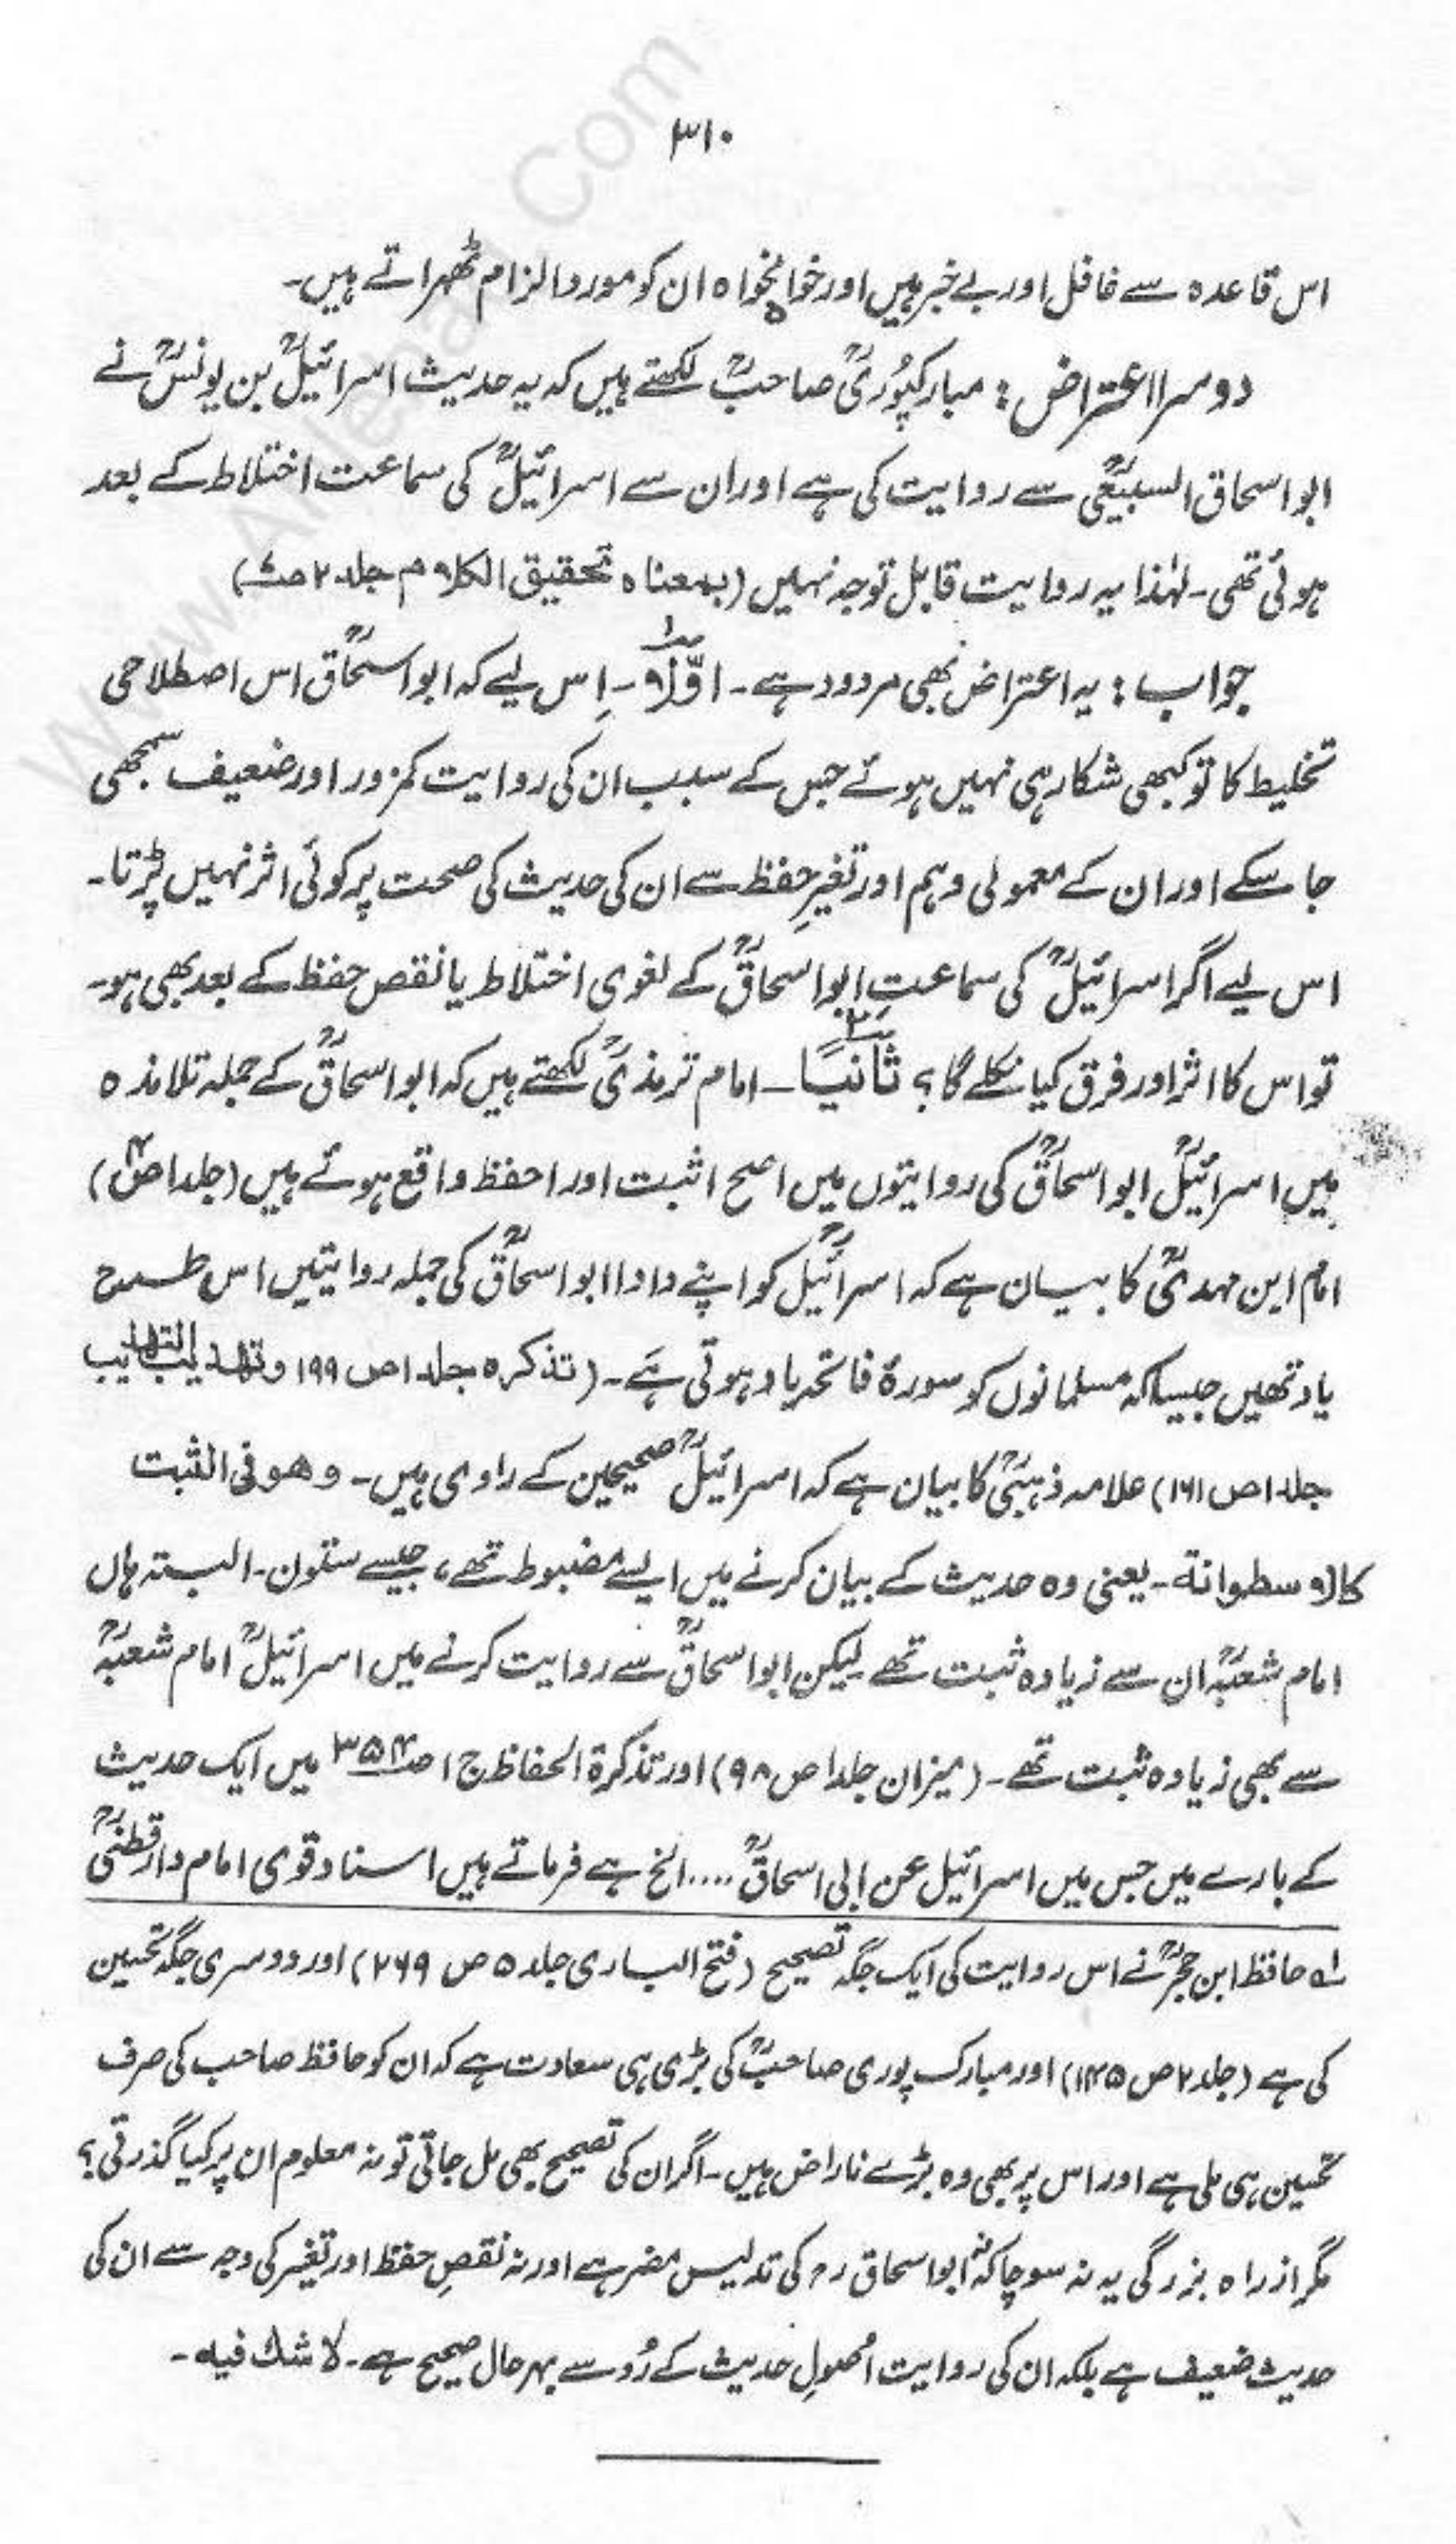 ۳۱۰
اس قاعدہ سے غافل اور بے خبر ہیں اور خوامخواہ ان کو مورد الزام ٹھہراتے ہیں۔
دوسرا اعتراض: مبارکپوُریؒ صاحبؒ لکھتے ہیں کہ یہ حدیث اسرائیلؒ بن یونسؒ نے
ابو اسحاق السبیعیؒ سے روایت کی ہے اور ان سے اسرائیلؒ کی سماعت اختلاط کے بعد
ہوئی تھی۔ لہٰذا یہ روایت قابل توجہ نہیں (بمعناہ تحقیق الکلام جلد ۲
جواب: یہ اعتراض بھی مردود ہے۔ اوّلاً۔ اِس لیے کہ ابو اسحٰاقؒ اس اصطلاحی
تخلیط کا تو کبھی شکار ہی نہیں ہوئے جس کے سبب ان کی روایت کمزور اور ضعیف سمجھی
جا سکے اور ان کے معمولی وہم اور تغیرِ حفظ سے ان کی حدیث کی صحت پر کوئی اثر نہیں پڑتا۔
اس لیے اگر اسرائیلؒ کی سماعتِ ابو اسحاقؒ کے لغوی اختلاط یا نقص حفظ کے بعد بھی ہو۔
تو اس کا اثر اور فرق کیا نکلے گا؟ ثانیاً۔ امام ترمذیؒ لکھتے ہیں کہ ابو اسحاقؒ کے جملہ تلامذہ
میں اسرائیلؒ ابو اسحاقؒ کی روایتوں میں اصح اثبت اور احفظ واقع ہوئے ہیں (جلد ا
امام ابن مہدیؒ کا بیان ہے کہ اسرائیلؒ کو اپنے دادا ابو اسحاقؒ کی جملہ روایتیں اس طرح
یاد تھیں جیسا کہ مسلمانوں کو سورۂ فاتحہ یاد ہوتی ہے۔ (تذکرہ جلد ا ص ۱۹۹ و تہذیب التہذیب
جلد ا ص ۱۶۱) علامہ ذہبیؒ کا بیان ہے کہ اسرائیلؒ صحیحین کے راوی ہیں۔ وھو فی الثبت
کالاسطوانة۔ یعنی وہ حدیث کے بیان کرنے میں ایسے مضبوط تھے، جیسے ستون۔ البتہ ہاں
امام شعبہؒ ان سے زیادہ ثبت تھے لیکن ابو اسحاقؒ سے روایت کرنے میں اسرائیلؒ امام شعبہؒ
سے بھی زیادہ ثبت تھے۔ (میزان جلد ا ص ۹۸) اور تذکرۃ الحفاظ ج ا ص۳۵۴ میں ایک حدیث
کے بارے میں جس میں اسرائیل عن ابی اسحاقؒ .... الخ ہے فرماتے ہیں اسناد قوی امام دارقطنیؒ
لہ حافظ ابن حجرؒ نے اس روایت کی ایک جگہ تصحیح (فتح الباری جلد ۵ ص ۲۶۹) اور دوسری جگہ تحسین
کی ہے (جلد ۲ ص ۱۴۵) اور مبارک پوری صاحبؒ کی بڑی ہی سعادت ہے کہ ان کو حافظ صاحب کی صرف
تحسین ہی ملی ہے اور اس پر بھی وہ بڑے ناراض ہیں۔ اگر ان کی تصحیح بھی مل جاتی تو نہ معلوم ان پر کیا گذرتی؟
مگر از راہ بزرگی یہ نہ سوچا کہ نہ ابو اسحاق رح کی تدلیس مضر ہے اور نہ نقصِ حفظ اور تغیر کی وجہ سے ان کی
حدیث ضعیف ہے بلکہ ان کی روایت اُصولِ حدیث کے رُو سے بہر حال صحیح ہے۔ لا شك فیہ۔